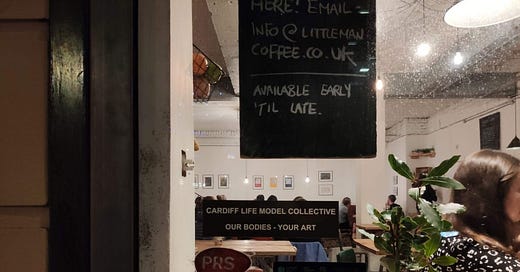 HERE! EMAIL
INFO@LITTLEMAN
COFFEE.CO.UK
AVAILABLE EARLY
'TIL LATE.
CARDIFF LIFE MODEL COLLECTIVE
OUR BODIES - YOUR ART
PRS